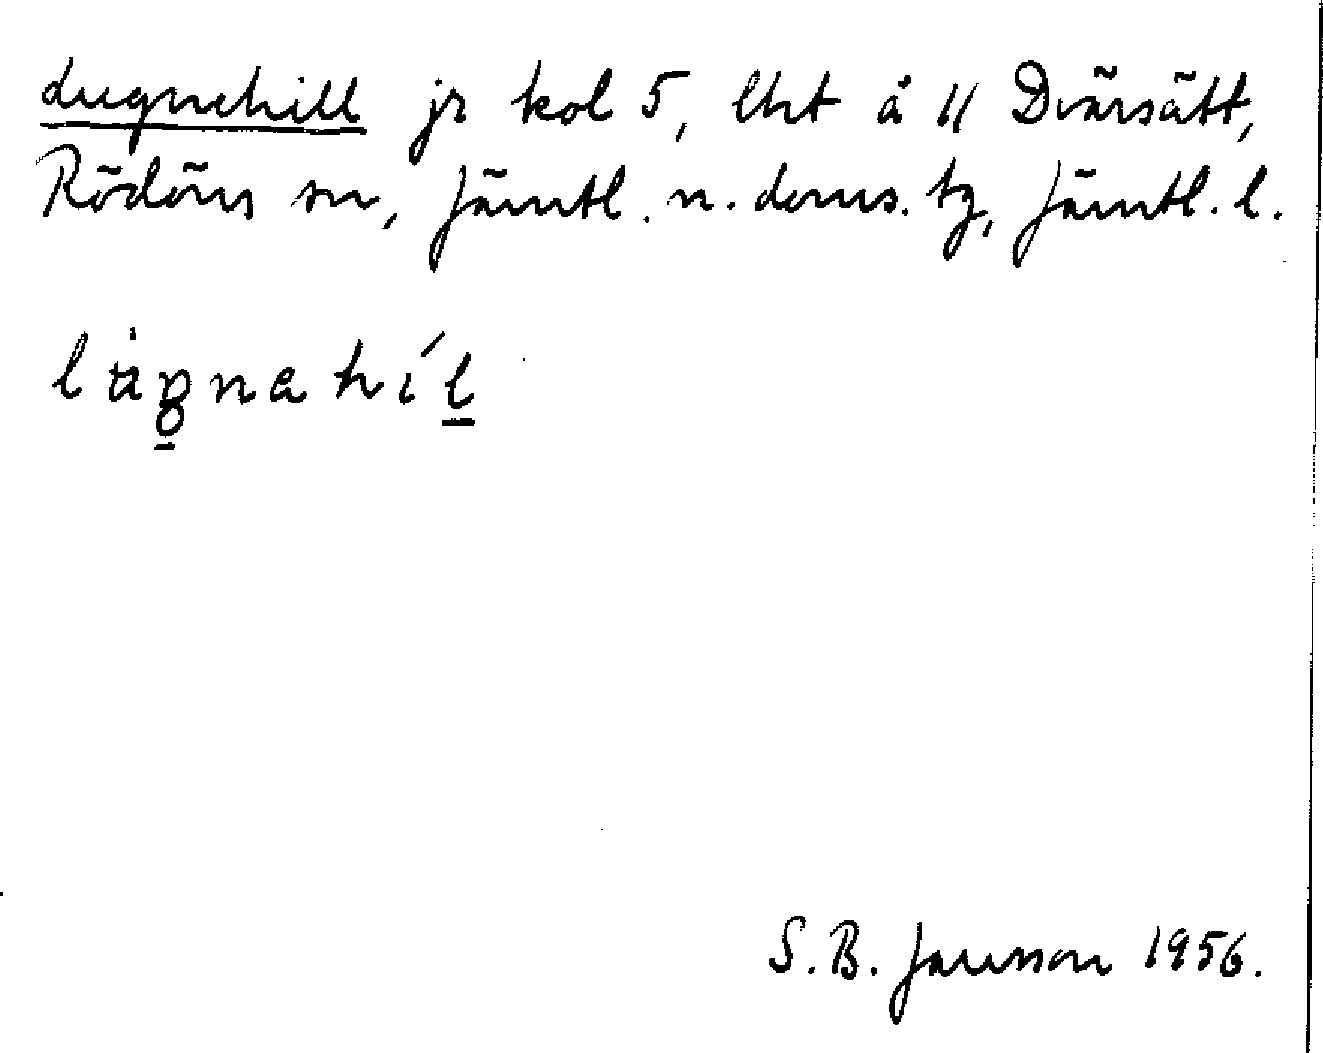 Lugnehill jr kol 5, lht å 11 Dvärsätt,
Rödöns sn, Jämtl. n. doms. tg, Jämtl. l.
S. B. Jansson 1956.